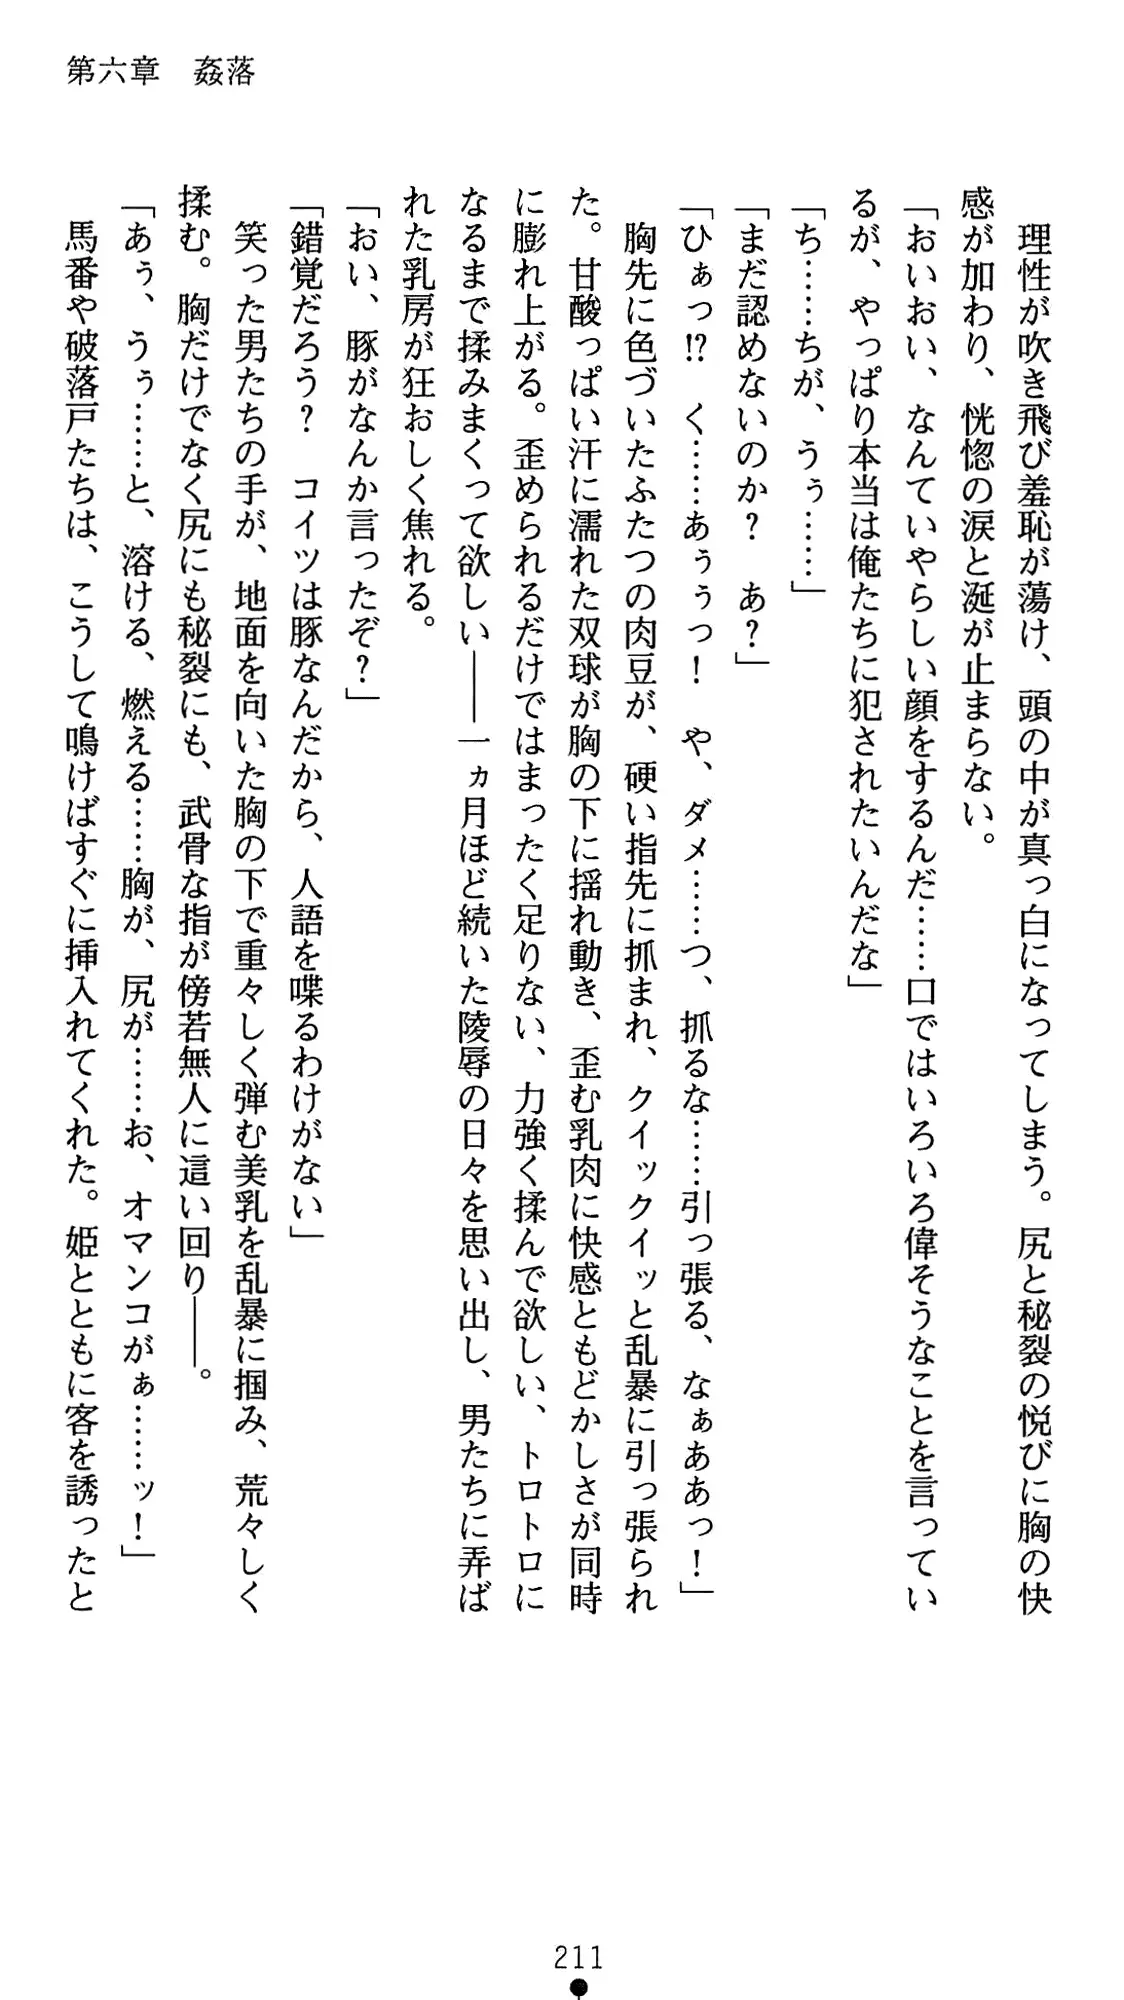 第六章　姦落
　理性が吹き飛び羞恥が蕩け、頭の中が真っ白になってしまう。尻と秘裂の悦びに胸の快
感が加わり、恍惚の涙と涎が止まらない。
「おいおい、なんていやらしい顔をするんだ……口ではいろいろ偉そうなことを言ってい
るが、やっぱり本当は俺たちに犯されたいんだな」
「ち……ちが、うぅ……」
「まだ認めないのか？　あ？」
「ひぁっ!?　く……あぅぅっ！　や、ダメ……つ、抓るな……引っ張る、なぁああっ！」
　胸先に色づいたふたつの肉豆が、硬い指先に抓まれ、クイックイッと乱暴に引っ張られ
た。甘酸っぱい汗に濡れた双球が胸の下に揺れ動き、歪む乳肉に快感ともどかしさが同時
に膨れ上がる。歪められるだけではまったく足りない、力強く揉んで欲しい、トロトロに
なるまで揉みまくって欲しい――一ヵ月ほど続いた陵辱の日々を思い出し、男たちに弄ば
れた乳房が狂おしく焦れる。
「おい、豚がなんか言ったぞ？」
「錯覚だろう？　コイツは豚なんだから、人語を喋るわけがない」
　笑った男たちの手が、地面を向いた胸の下で重々しく弾む美乳を乱暴に掴み、荒々しく
揉む。胸だけでなく尻にも秘裂にも、武骨な指が傍若無人に這い回り――。
「あぅ、うぅ……と、溶ける、燃える……胸が、尻が……お、オマンコがぁ……ッ！」
　馬番や破落戸たちは、こうして鳴けばすぐに挿入れてくれた。姫とともに客を誘ったと
211